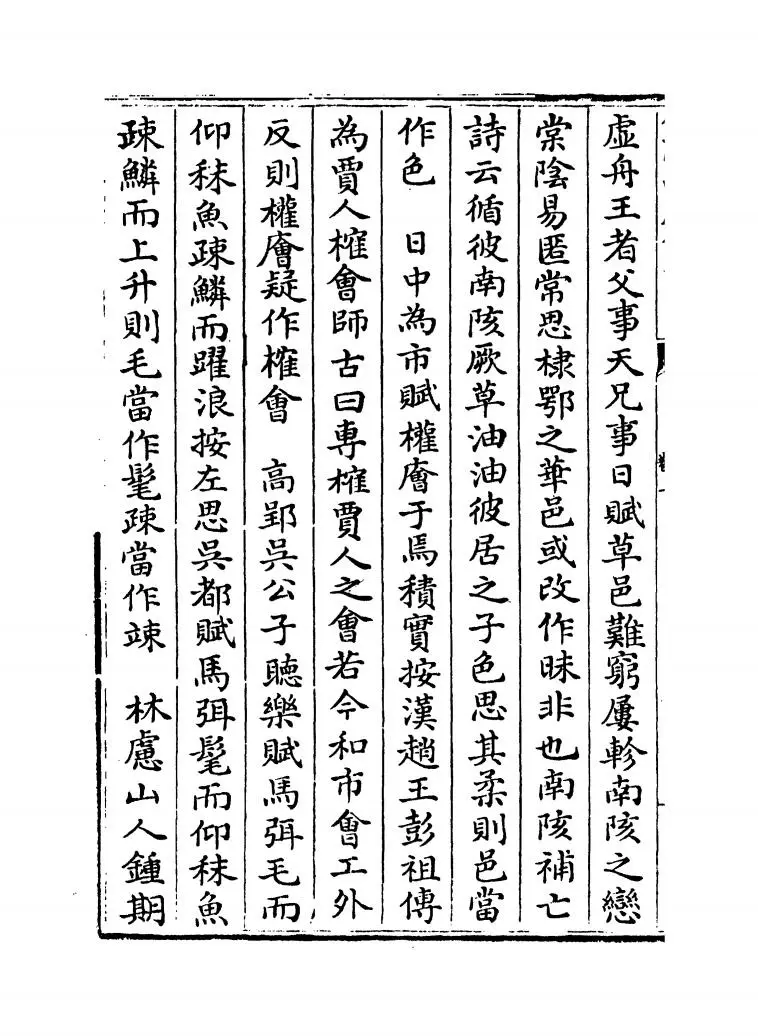 虛舟王者父事天兄事日賦草邑難窮屢軫南陔之戀
棠陰易匿常思棣鄂之華邑或改作昧非也南陔補亡
詩云循彼南陔厥草油油彼居之子色思其柔則邑當
作色　日中為市賦權㕓于焉積實按漢趙王彭祖傳
為賈人榷會師古曰專榷賈人之會若今和市會工外
反則權㕓疑作榷會　高郢吳公子聽樂賦馬弭毛而
仰秣魚疎鱗而躍浪按左思吳都賦馬弭髦而仰秣魚
疎鱗而上升則毛當作髦疎當作竦　林慮山人鍾期